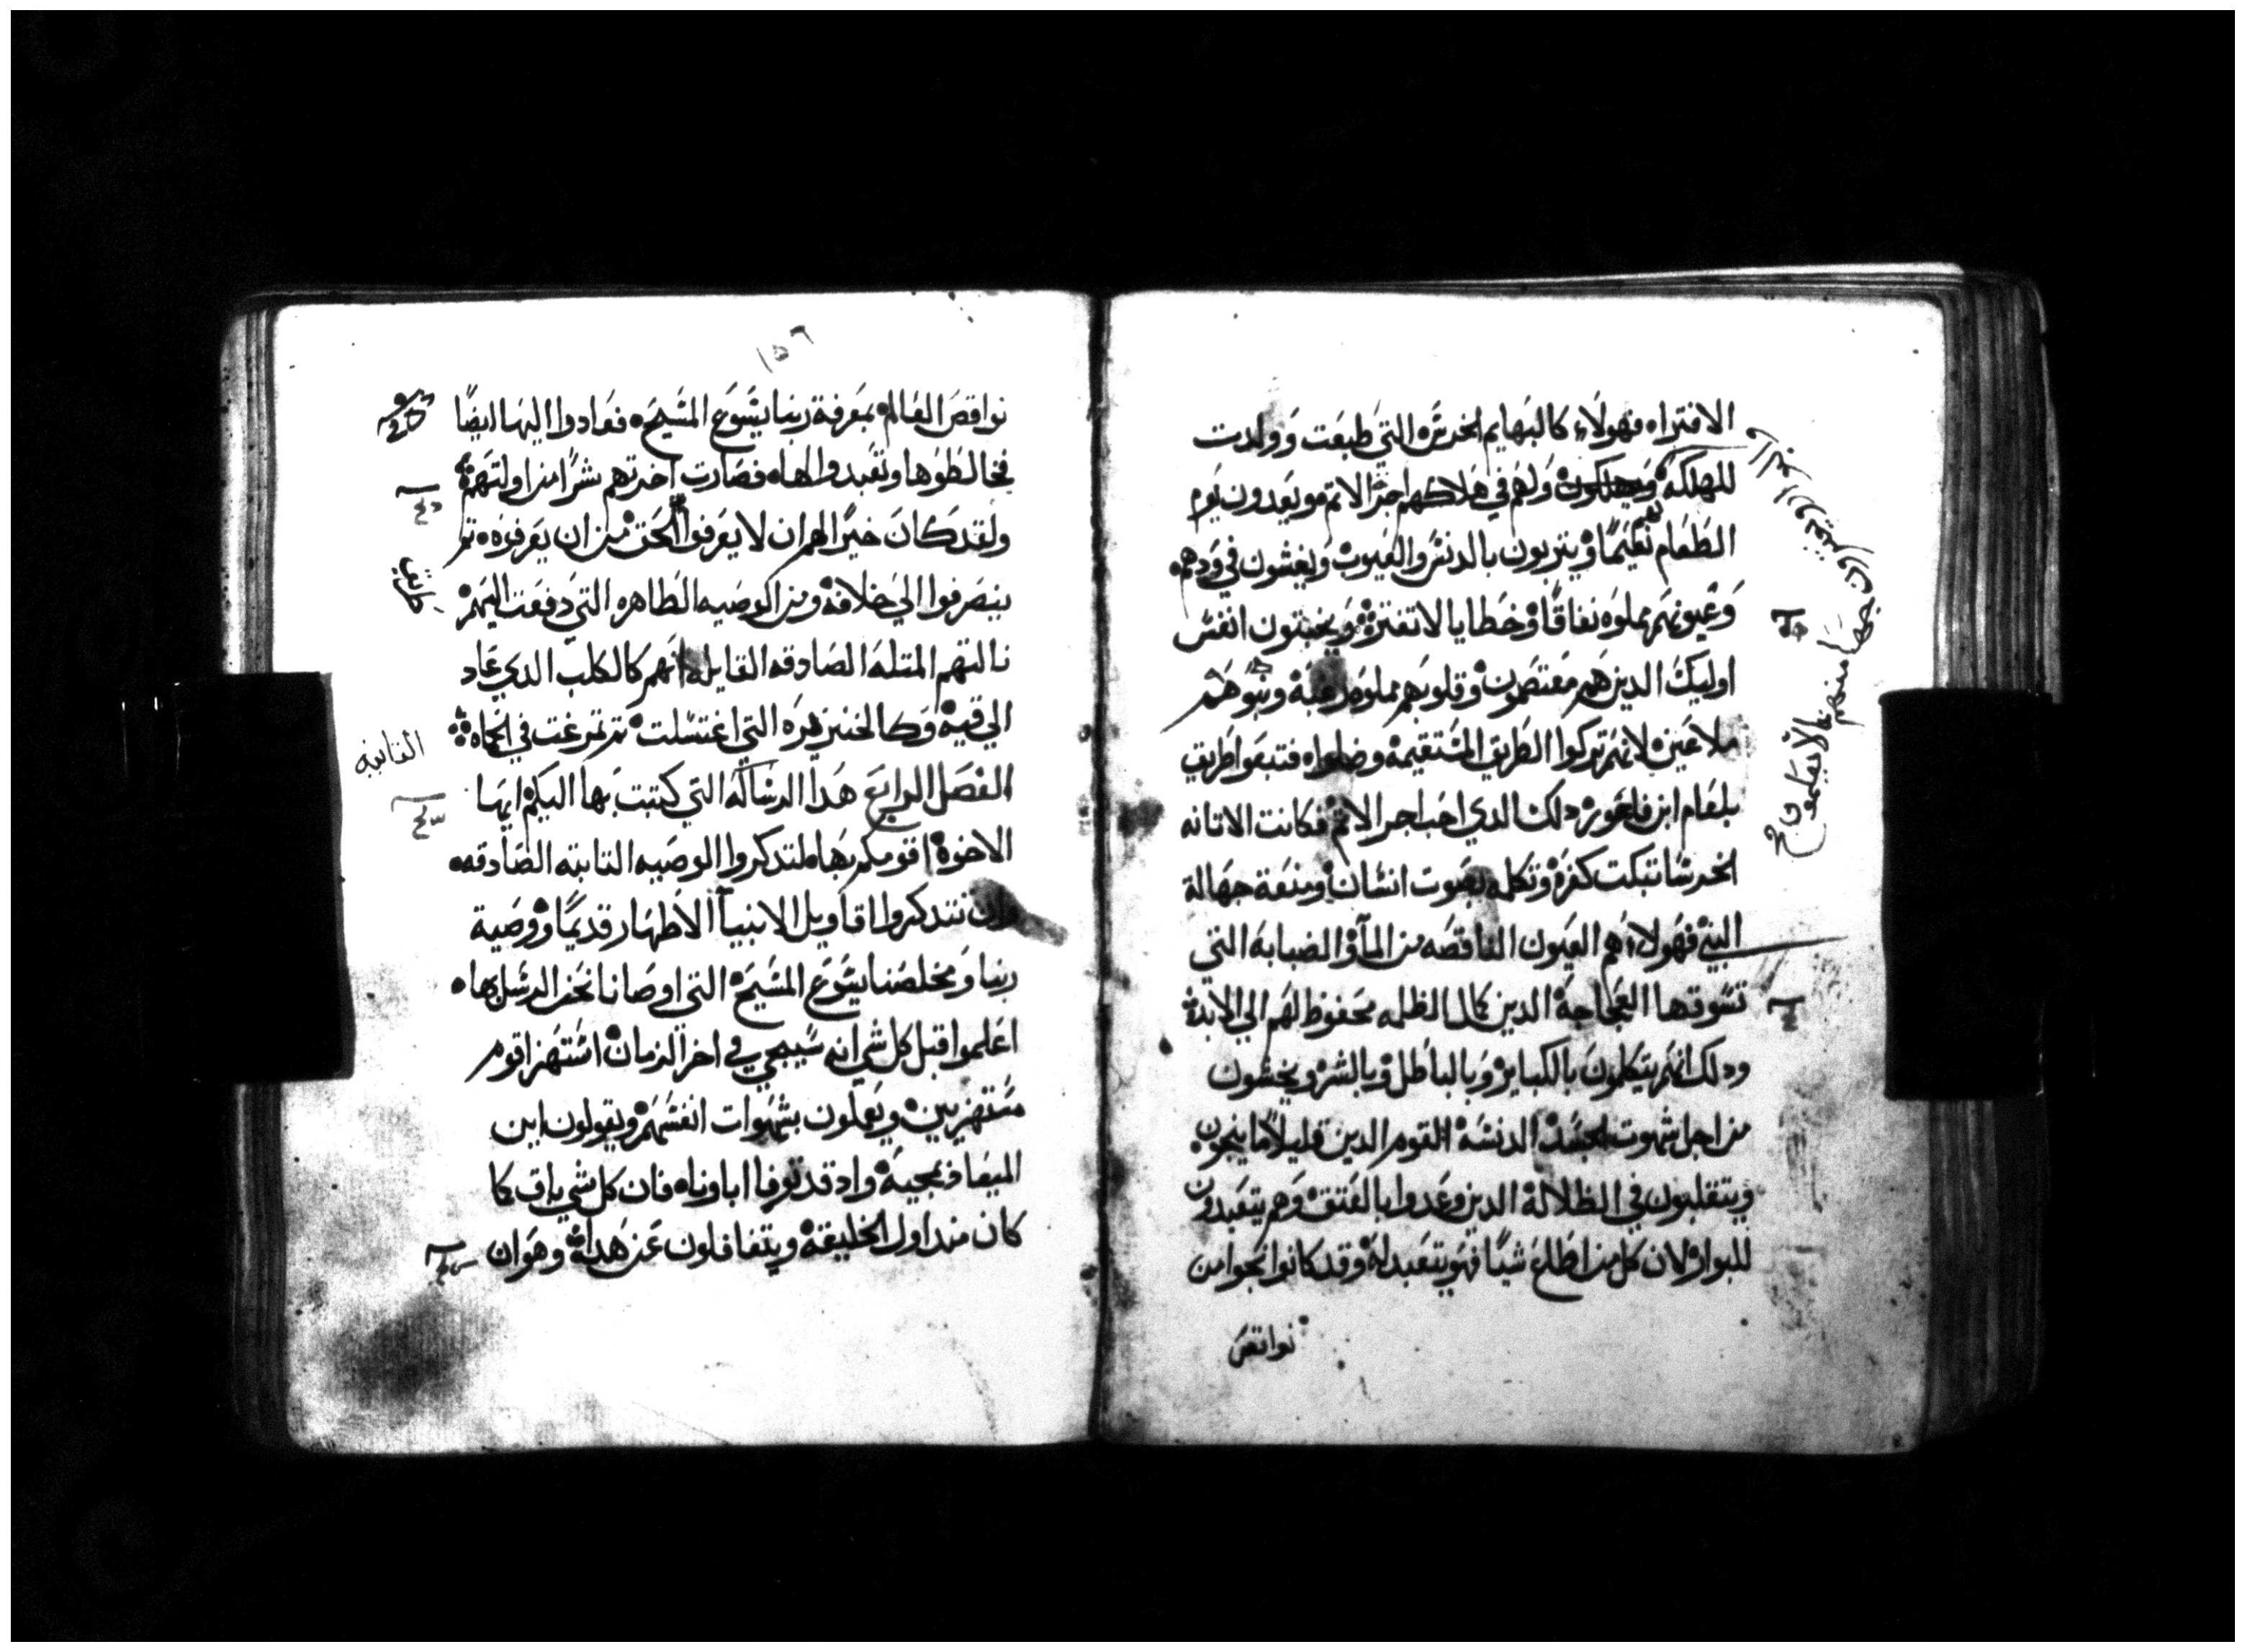 الافتراه فهولاء كالبهايم الخدسَه التي طبعت وولدت
للهلكه ويهلكون ولهم في هلاكهم اجر الاتم مو يعدون يوم
الطعام نعيمًا ويتربون بالدنس والعيوب ويغشون في ودهم
وعيونهم مملوه نفاقًا وخطايا لا تفتر ويخبتون انفس
اوليك الدين هم معتصمون وقلوبهم مملوه رغبه وبنوهم
ملاعين لانهم تركوا الطريق المستقيمه وضلوا فتبعوا طريق
بلعام ابن فاغور دلك الدي احب اجر الاتم فكانت الاتانه
الخرسا تبكت كفره وتكلم بصوت انسان ومنعة جهالة
النبي فهولاء هم العيون الناقصه من المآ والضبابه التي
تسوقها العجاجة الدين كال الظلمه محفوظ لهم الي الابد
ودلك انهم يتكلمون بالكباير وبالباطل وبالشر ويخشون
من اجل شهوت الجسد الدنسة القوم الدين قليلاً ما ينجون
ويتقلبون في الظلالة الدين وعدوا بالعتق وهم يتعبدون
للبوار لان كل من اطلع شيًا فهو يتعبد له وقد كانوا نجوا من
نواقص
يفترون جهلا منهم
لا يعلمون
١٥٦
نواقص العالم بمعرفة ربنا يسَوع المسَيح فعادوا اليها ايضًا
فخالطوها وتعبدوا لها فصارت اخرتهم شرًا من اولتهم
ولقد كان خيرًا لهم ان لا يعرفوا الحق من ان يعرفوه تم
ينصرفوا الي خلافه ومن الوصيه الطاهره التي دفعت اليهم
نالتهم المتله الصادقه القايله انهم كالكلب الدي عاد
الي قيه وكالخنزيره التي اغتسلت تم تمرغت في الحماه
الفصل الرابع هدا الرسالة التي كتبت بها اليكم ايها
الاخوة اقومكم بها لتدكروا الوصيه التابته الصادقه
وان تتدكروا اقاويل الانبيآ الاطهار قديمًا ووصية
ربنا ومخلصنا يسَوع المسَيح التي اوصانا نحن الرسل بها
اعلموا قبل كل شي انه سَيجي في اخر الزمان استهزا قوم
مستهزيين ويعملون بشهوات انفسهم ويقولون اين
الميعاد بمجيه واد قد توفا اباونا فان كل شي باق كما
كان مند اول الخليقة ويتغافلون عن هدا وهو ان
التانيه